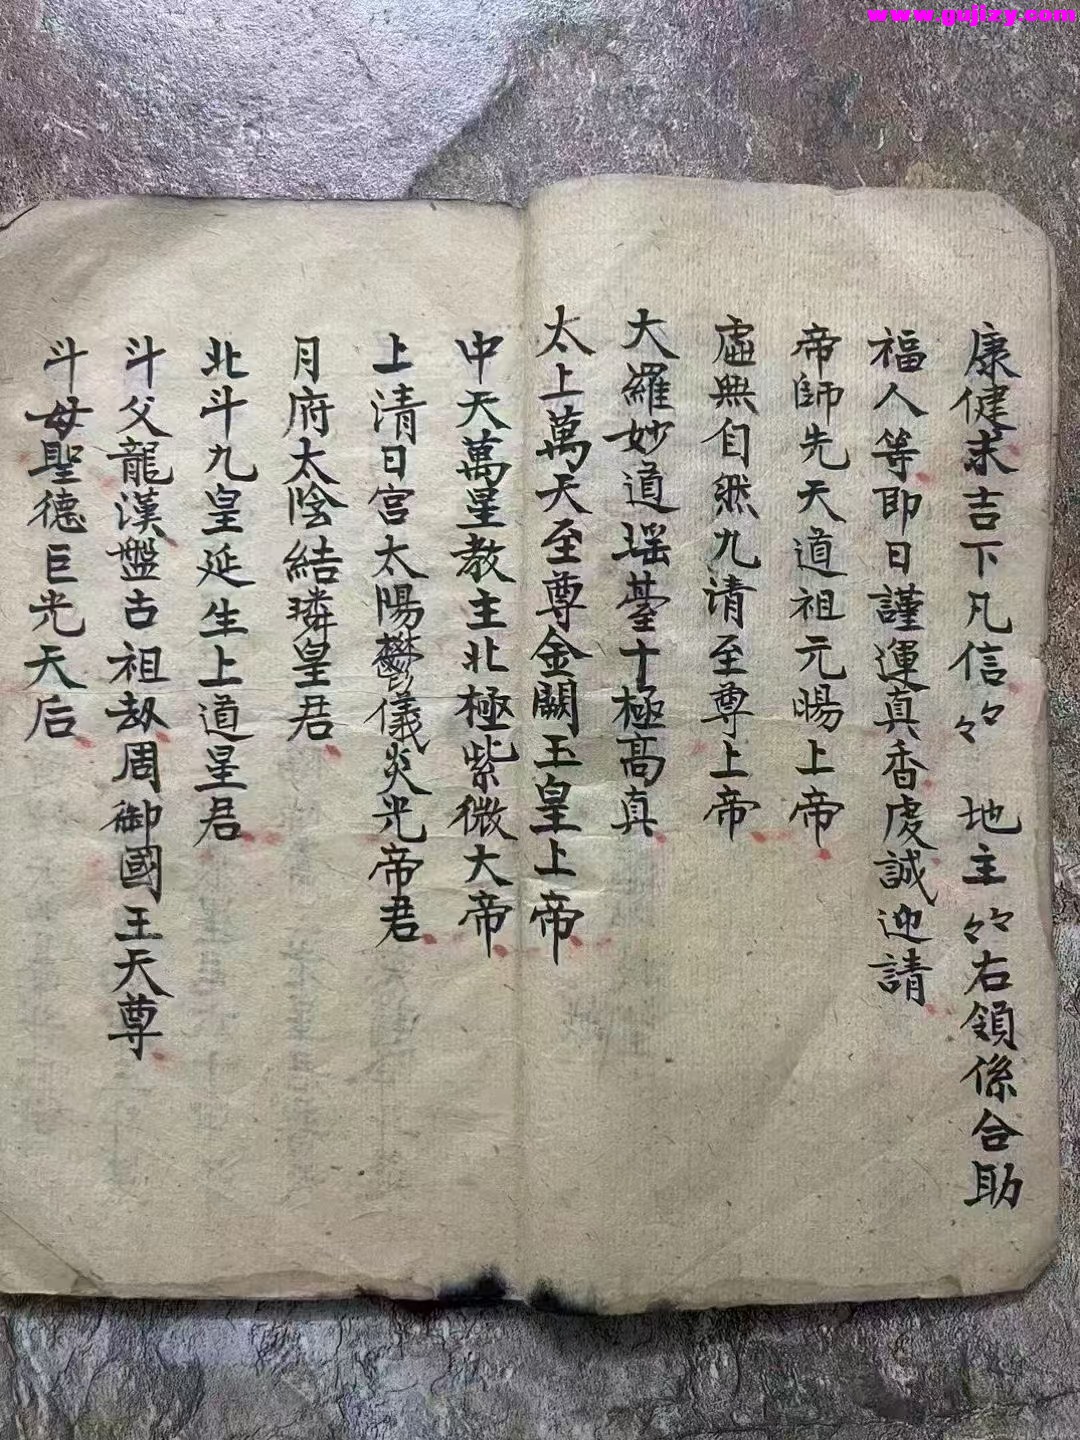 www.gujizy.com
康健求吉下凡信々々 地主々々右領係合助
福人等即日謹運真香虔誠迎請
帝師先天道祖元暘上帝
虛無自然九清至尊上帝
大羅妙道瑶臺十極高真
太上萬天至尊金闕玉皇上帝
中天萬星教主北極紫微大帝
上清日宮太陽鬱儀炎光帝君
月府太陰結璘皇君
北斗九皇延生上道星君
斗父龍漢盤古祖劫周御國王天尊
斗母聖德巨光天后